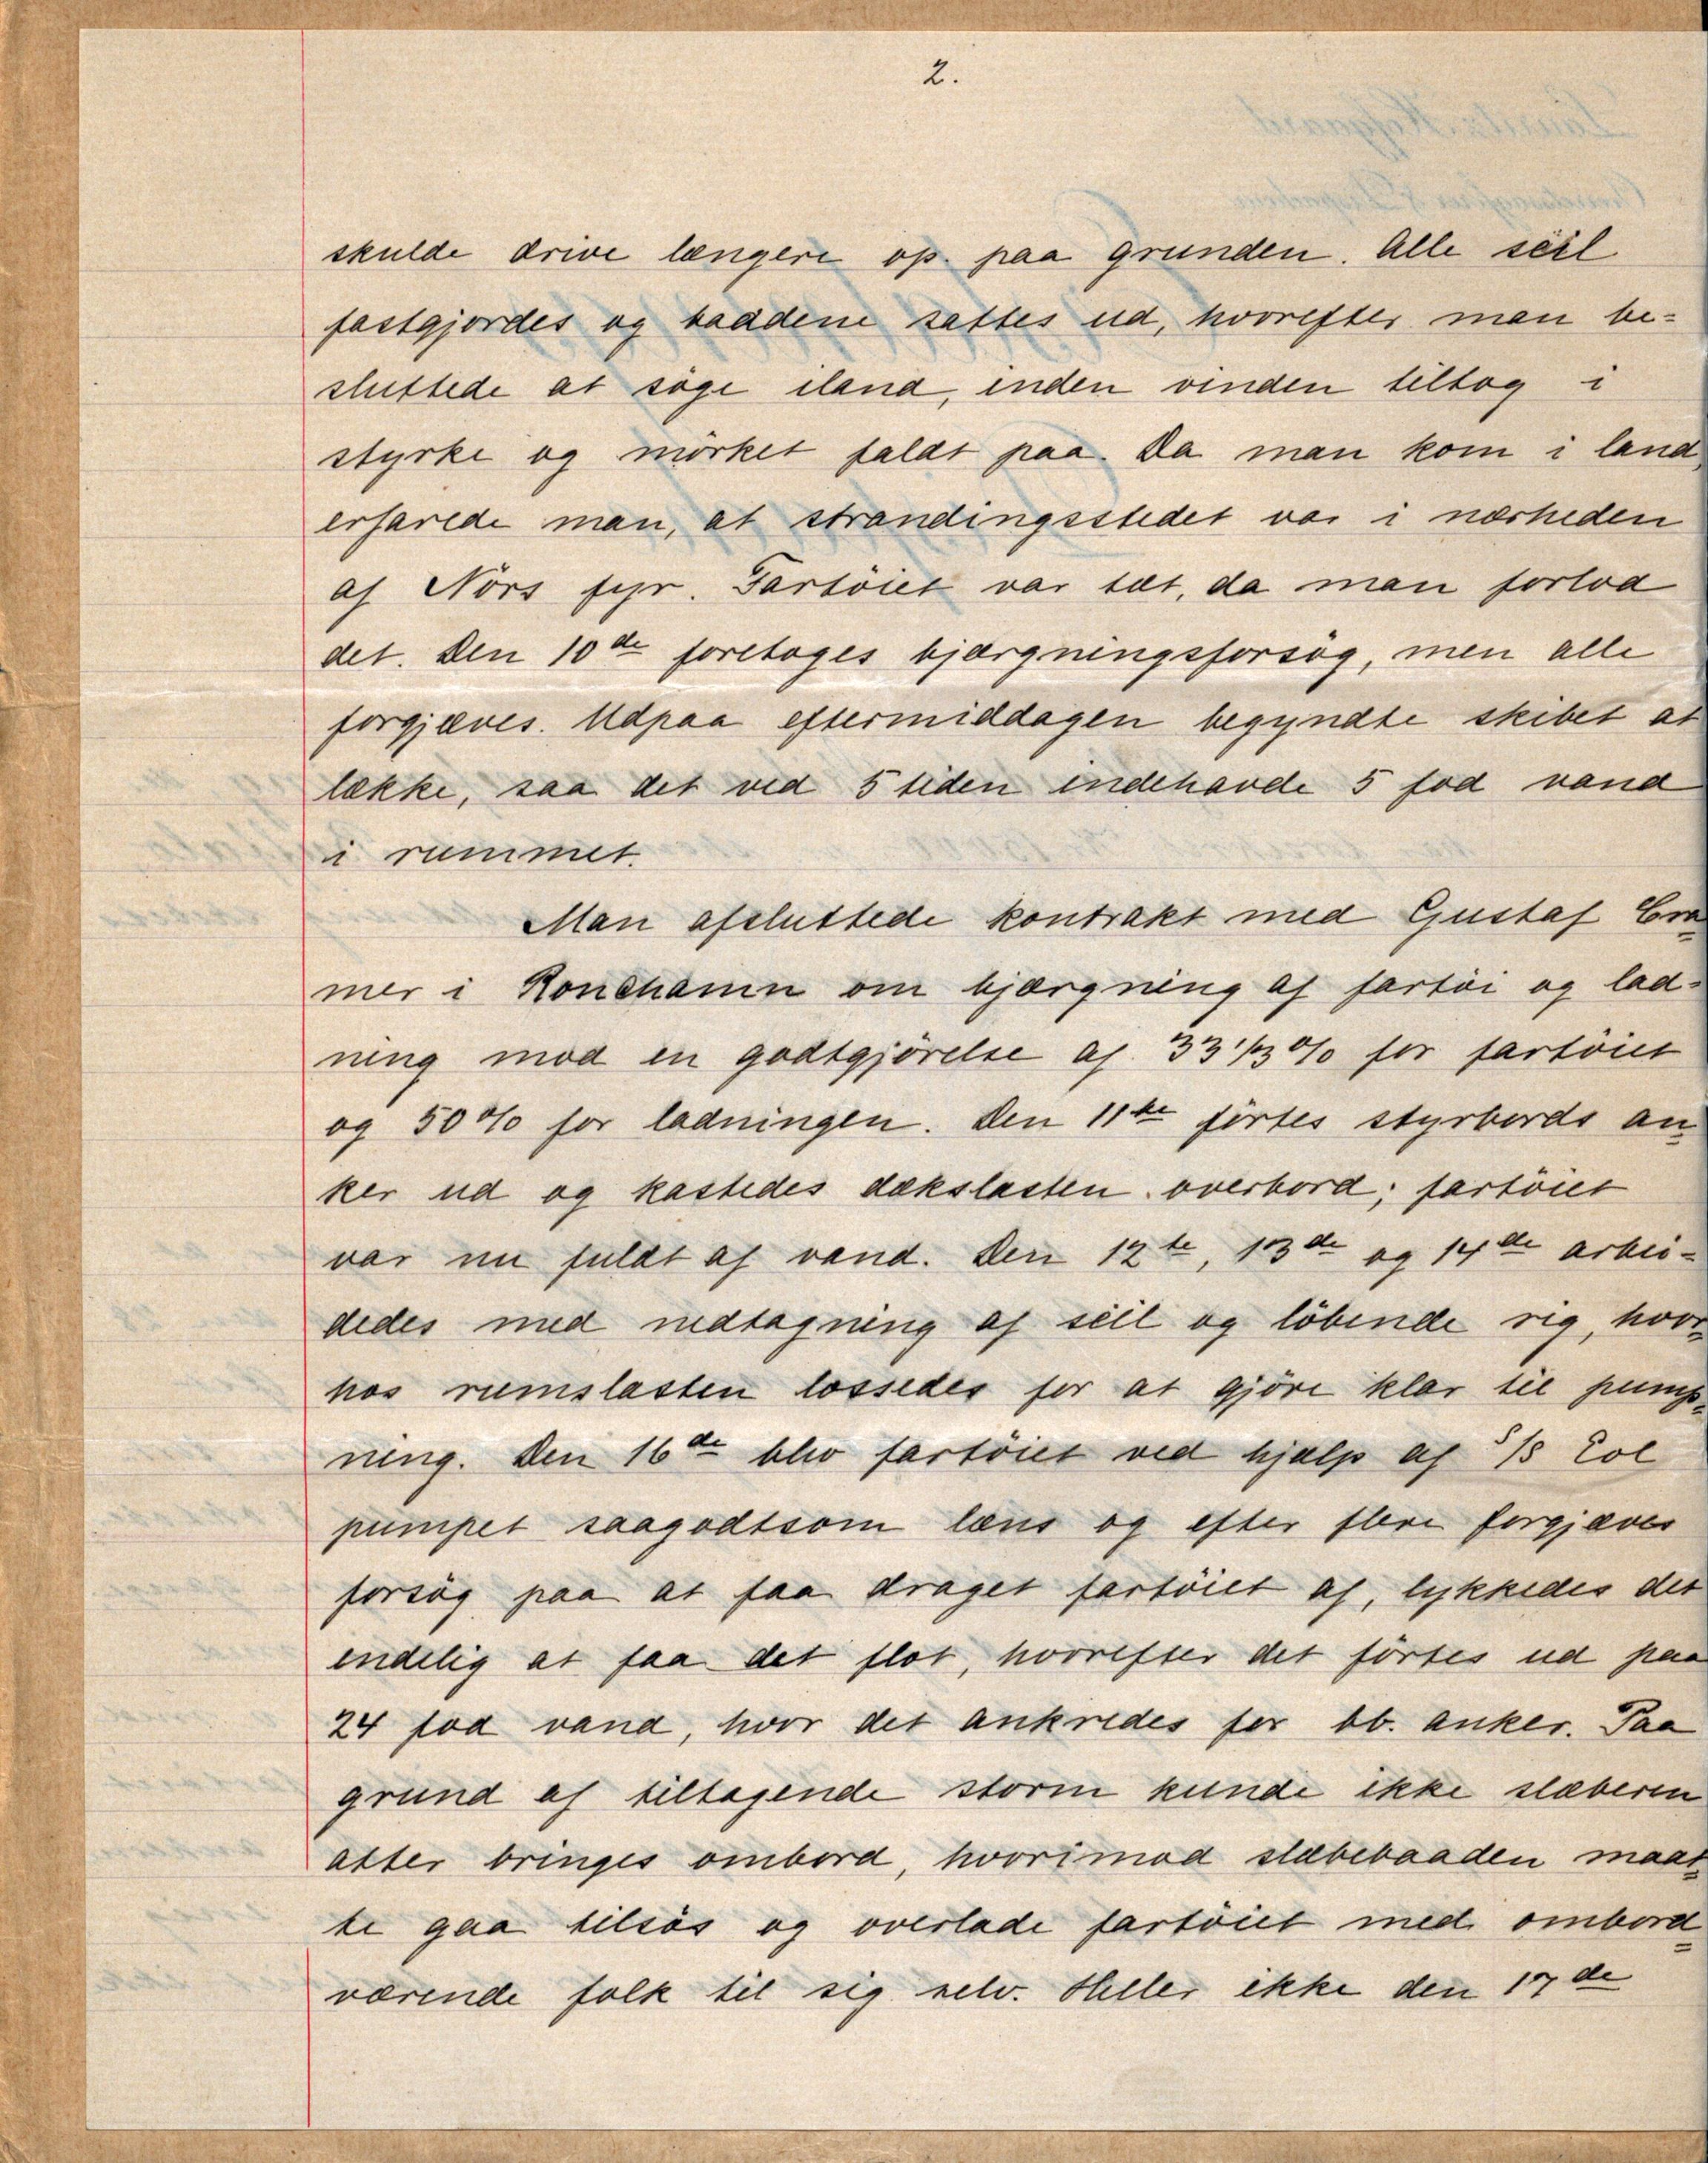 2.
skulde drive længere op paa grunden. Alle seil
fastgjordes og baadene sattes ud, hvorefter man be-
sluttede at søge iland, inden vinden tiltog i
styrke og mörket faldt paa. Da man kom i land,
erfarede man, at strandingsstedet var i nærheden
af Nörs fyr. Fartöiet var tæt, da man forlod
det. Den 10de foretoges bjærgningsforsøg, men alle
forgjæves. Udpaa eftermiddagen begyndte skibet at
lække, saa det ved 5 tiden indehavde 5 fod vand
i rummet.
Man afsluttede kontrakt med Gustaf Cra
mer i Ronehamn om bjærgning af fartöi og lad-
ning mod en godtgjörelse af 33 1/3 % for fartöiet
og 50 % for ladningen. Den 11te förtes styrbords an
ker ud og kastedes dækslasten overbord; fartöiet
var nu fuldt af vand. Den 12te, 13de og 14de arbei-
dedes med nedtagning af seil og löbende rig, hvor
hos rumslasten lossedes for at gjöre klar til pump
ning. Den 16de blev fartöiet ved hjælp af S/S Eol
pumpet saagodtsom læns og efter flere forgjæves
forsøg paa at faa draget fartöiet af, lykkedes det
endelig at faa det flot, hvorefter det förtes ud paa
24 fod vand, hvor det ankredes for bb. anker. Paa
grund af tiltagende storm kunde ikke slæberen
atter bringes ombord, hvorimod slæbebaaden maat
te gaa tilsøs og overlade fartöiet med ombord
værende folk til sig selv. Heller ikke den 17de